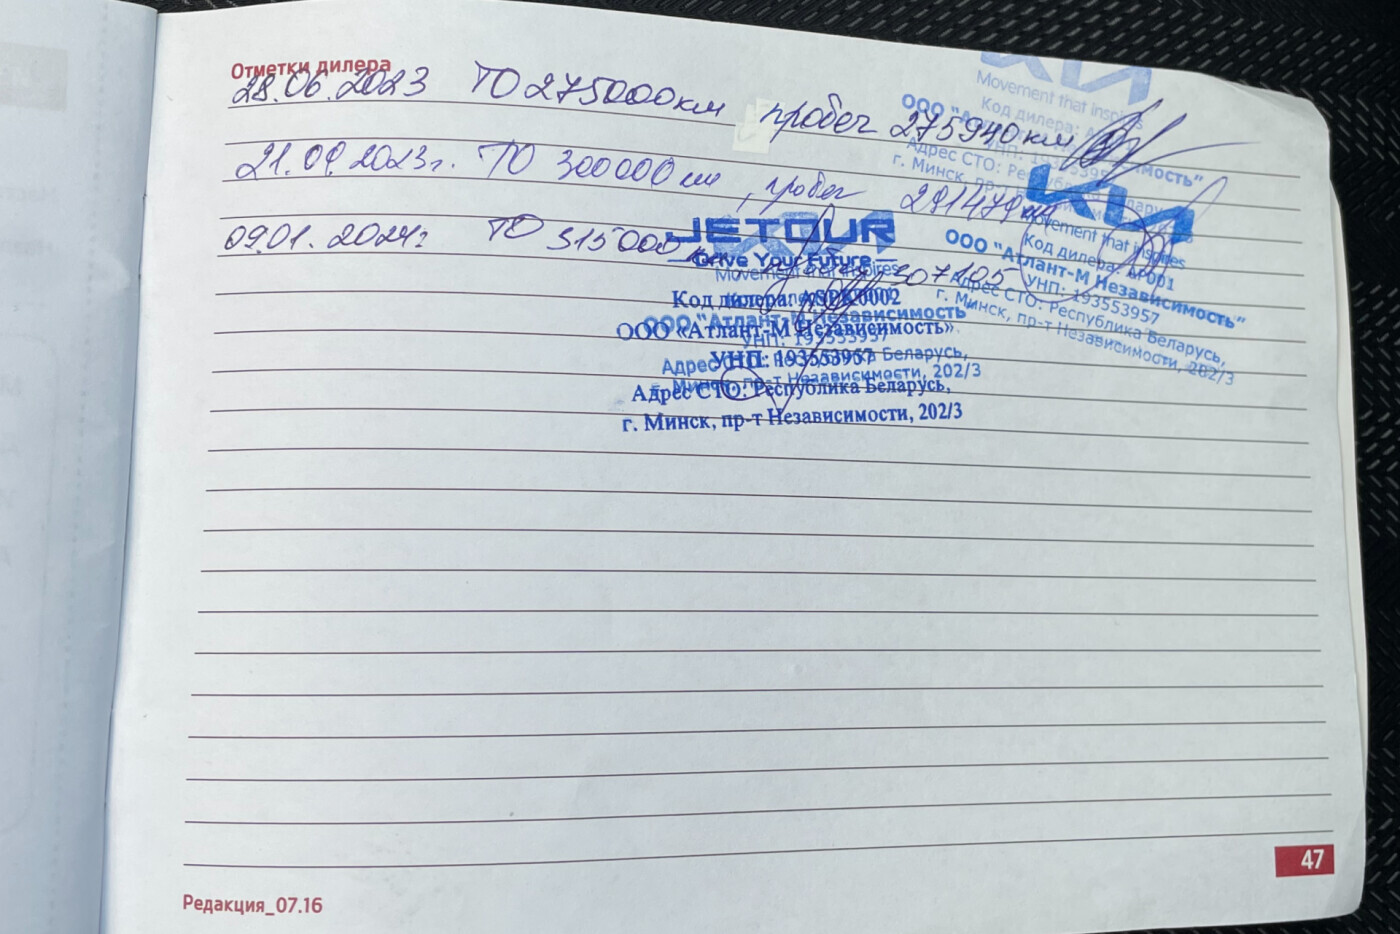 Отметки дилера
28.06.2023 ТО 275000км пробег 275940км
Movement that inspires
Код дилера:
ООО "А
УНП: 19355395
Адрес СТО: Респу
г. Минск, пр-т
21.09.2023г. ТО 300000км, пробег 291479км
KIA
Movement that inspires
Код дилера: AP001
ООО "Атлант-М Независимость"
УНП: 193553957
Адрес СТО: Республика Беларусь,
г. Минск, пр-т Независимости, 202/3
09.01.2024г ТО 315000км, пробег 307105
JETOUR
Drive Your Future
Movement that inspires
Код дилера:
ООО "Атлант-М Независимость"
УНП: 193553957
Адрес СТО: Республика Беларусь,
г. Минск, пр-т Независимости, 202/3
ООО «Атлант-М Независимость»
УНП: 193553957
Адрес СТО: Республика Беларусь,
г. Минск, пр-т Независимости, 202/3
47
Редакция_07.16